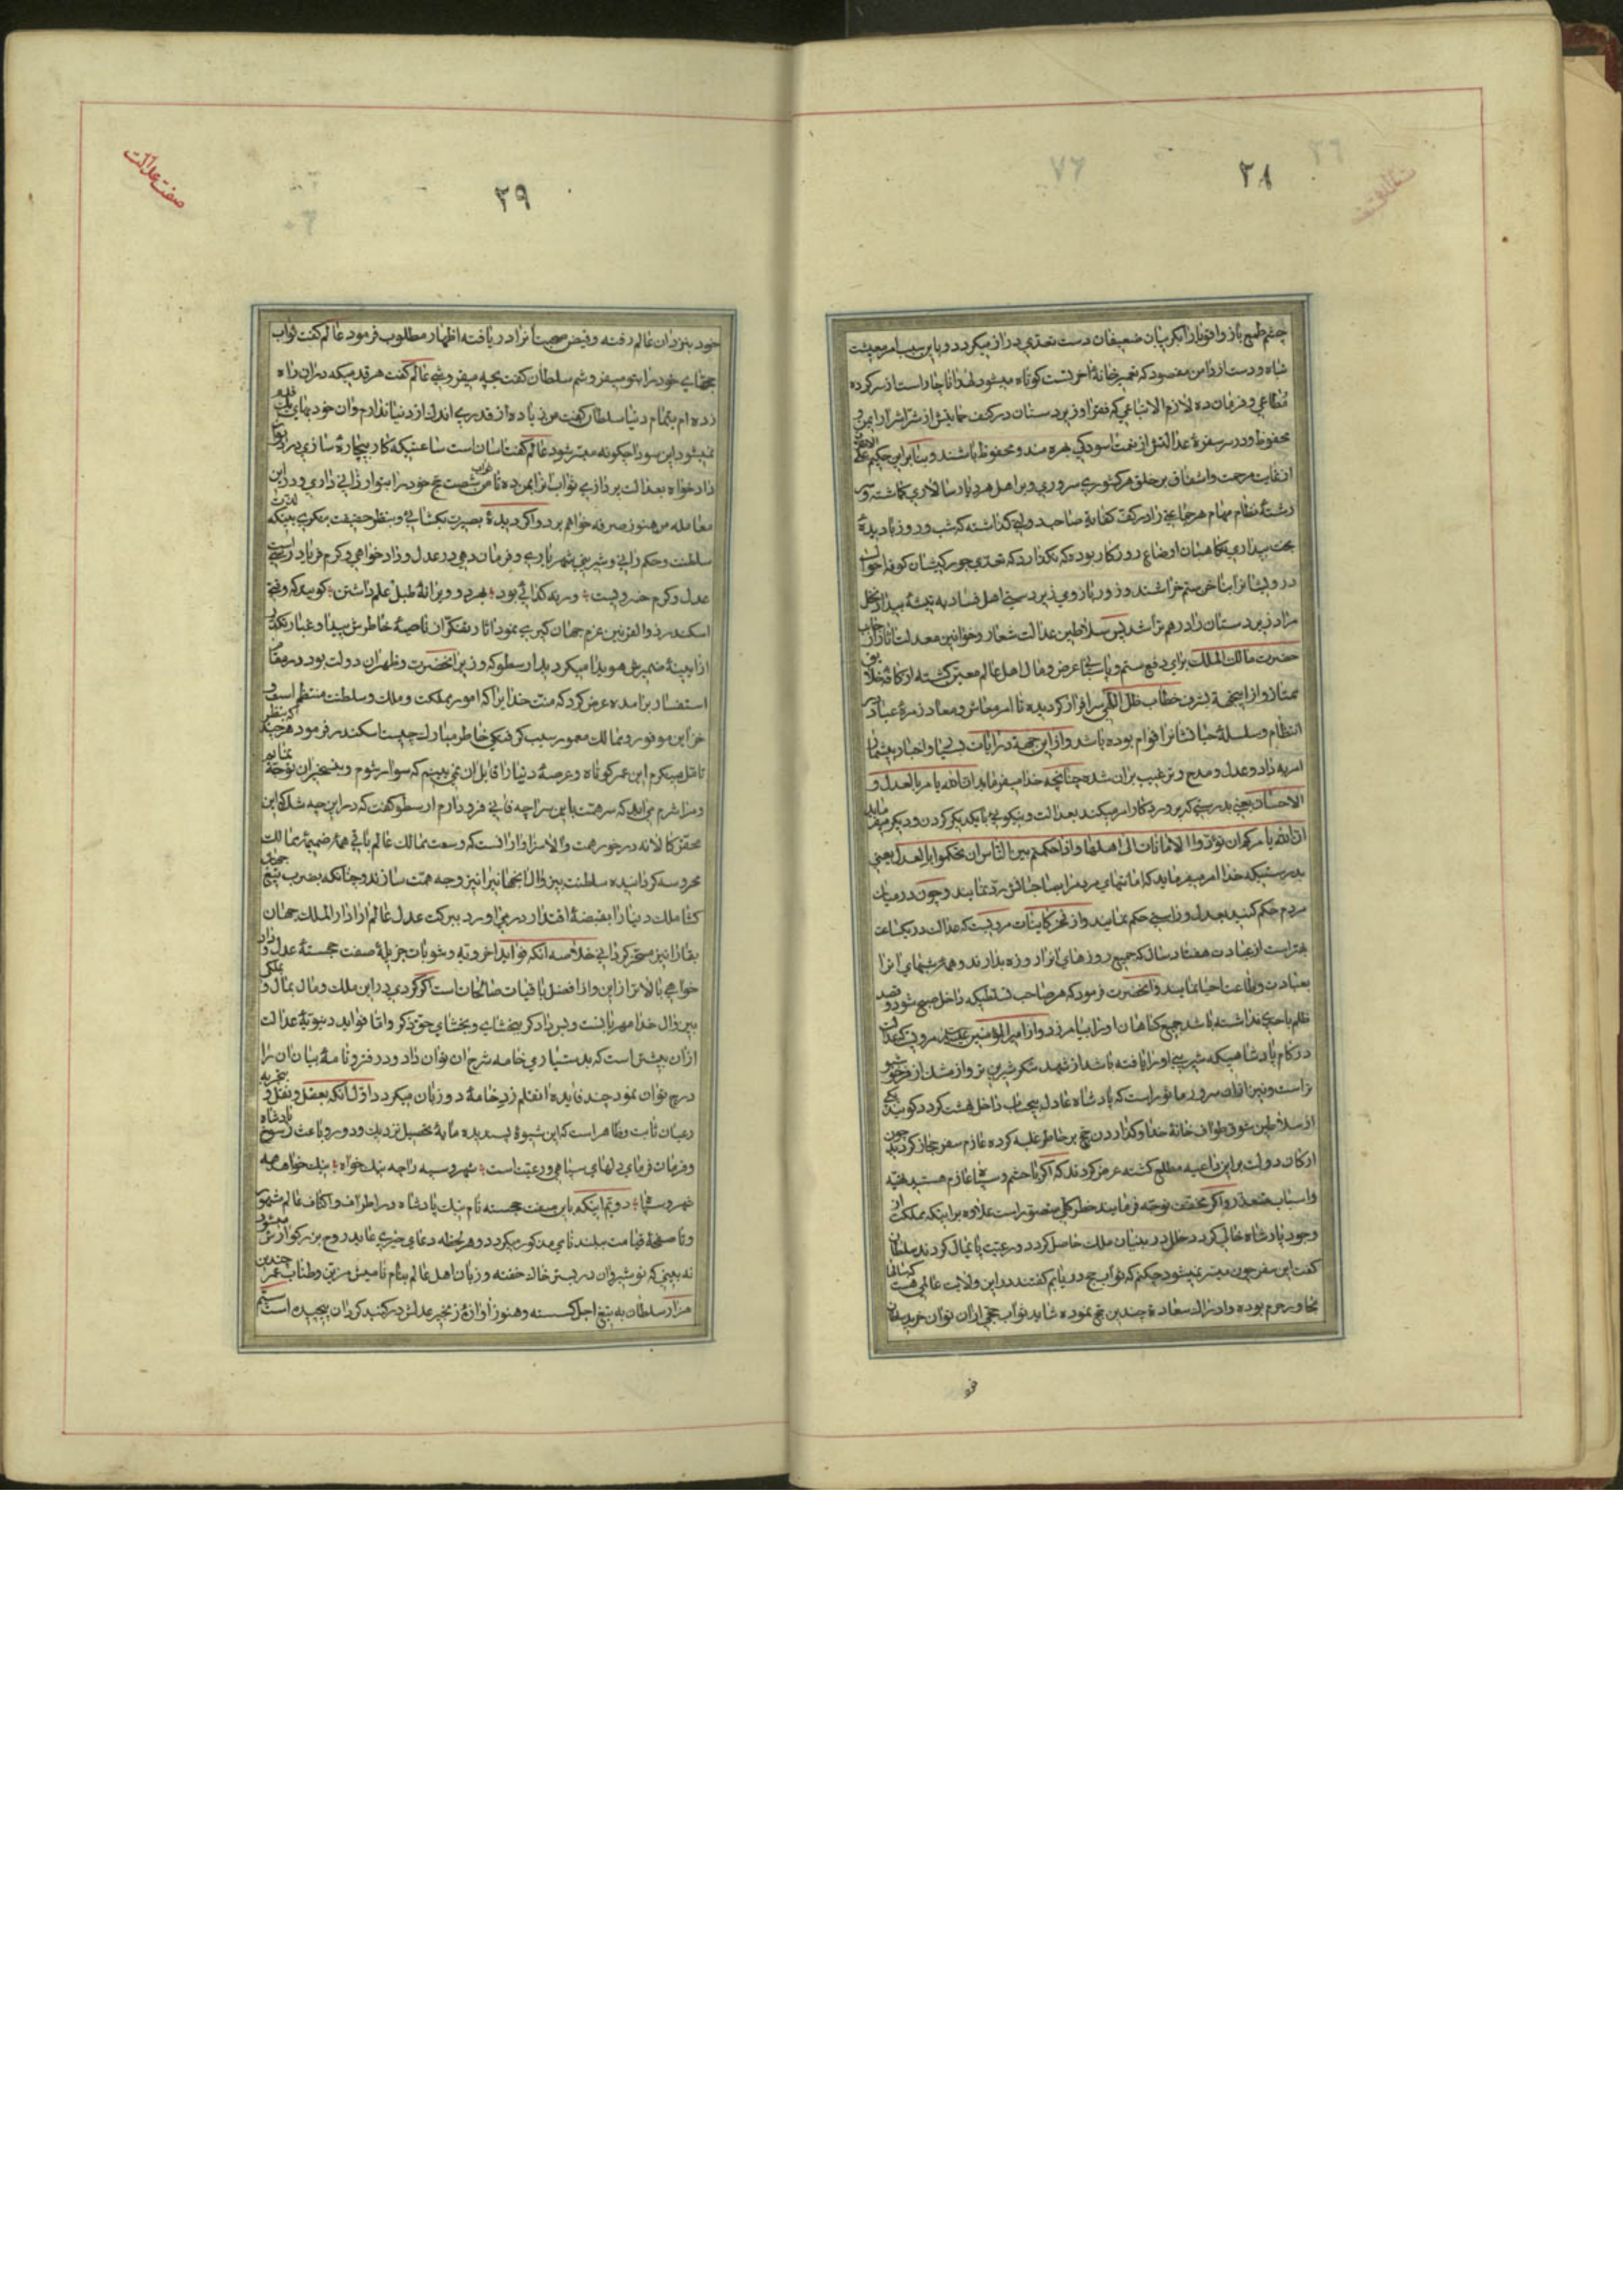 ۲۸
چشم طمع باز و اقویا را بگریبان ضعیفان دست تعدی دراز میگردد و باین سبب امر معیشت
تباه و دست از دامن مقصود که تعمیر خانهٔ آخرتست کوتاه میشود لهذا ناچار است از سرکرده
مطاعی و فرمان ده لازم الاتباعی که فقرا و زیردستان در کنف حمایتش از شر اشرار ایمن و
محفوظ و در سر سفرهٔ عدالتش از نعمت اسودگی بهره مند و محظوظ باشند و بنابراین حکیم علی الاطلاق
از غایت مرحمت و اشفاق بر خلق هر کشوری سروری و بر اهل هر دیار سالاری گماشته و سر
رشتهٔ نظام مهام هر جماعتی را در کف کفایة صاحب دولتی گذاشته که شب و روز با دیدهٔ
بخت بیدار نگاهبان اوضاع روزگار بوده که نگذارد که تعدی جور کیشان کوفه احوال
درویشانرا بناخن ستم خراشند و زور بازوی زبردستی اهل فساد به تیشهٔ بیداد نخل
مراد زیردستان را درهم تراشد پس سلاطین عدالت شعار و خواقین معدلت اثار از جانب
حضرت مالک الملک برای دفع ستم و پاسبانی عرض و مال اهل عالم معین گشته از کافهٔ خلایق
ممتاز و از اینجهة بشرف خطاب ظل اللهی سرافراز گردیده تا امر معاش و معاد زمرهٔ عباد در
انتظام و سلسلهٔ حیاتشانرا قوام بوده باشد و از این جهة در ایات بسیار و اخبار بیشمار
امر به داد و عدل و مدح و ترغیب بران شده چنانچه خدا میفرماید ان الله یامر بالعدل و
الاحسان یعنی بدرستی که پروردگار امر میکند بعدالت و نیکویی با یکدیگر کردن و دیگر میفرماید
ان الله یامرکم ان تؤدوا الامانات الی اهلها و اذا حکمتم بین الناس ان تحکموا بالعدل یعنی
بدرستیکه خدا امر میفرماید که امانتهای مردمرا بصاحبانش رد نمایند و چون در میان
مردم حکم کنید بعدل و راستی حکم نمایند و از فخر کاینات مرویست که عدالت در یکساعت
بهتر است از عبادت هفتاد سال که جمیع روزهای انرا روزه بدارند و همهٔ شبهای انرا
بعبادت و طاعت احیا نمایند و آنحضرت فرمود که هر صاحب تسلطیکه داخل صبح شود و قصد
ظلم باحدی نداشته باشد جمیع گناهان اورا بیامرزد و از امیرالمؤمنین مرویست که عدالت
در کام پادشاهیکه شیرینی اورا یافته باشد از شهد و شکر شیرین تر و از مشک اذفر خوشبو
تراست و نیز از ان سرور ماثور است که پادشاه عادل بیحساب داخل بهشت گردد گویند یکی
از سلاطین شوق طواف خانهٔ خدا و گذاردن حج بر خاطر غلبه کرده عازم سفر حجاز گردید چون
ارکان دولت بر این داعیه مطلع گشته عرض کردند که اگر با حشم و سپاه عازم هستید تهیه
و اسباب متعذر و اگر مخفف توجه فرمایند خطر کلی متصور است علاوه بر اینکه مملکت از
وجود پادشاه خالی گردد خلل در بنیان ملک حاصل گردد و رعیت پایمال گردند سلطان
گفت این سفر چون میسر نمیشود چکنم که ثواب حج دریابم گفتند در این ولایت عالمی هست که سالها
مجاور حرم بوده و ادراک سعادة چندین حج نموده شاید ثواب حجی از ان توان خرید سلطان
صفت عدالت
۲۹
خود بنزد ان عالم رفته و فیض صحبت انرا دریافته اظهار مطلوب فرمود عالم گفت ثواب
حجهای خود را بتو میفروشم سلطان گفت بچه میفروشی عالم گفت هر قدمیکه در ان راه
زده ام بتمام دنیا سلطان گفت من زیاده از قدری اندک از دنیا ندارم و ان خود بهای یک قدم
نمیشود این سودا چگونه میسر شود عالم گفت اسان است ساعتیکه کار بیچاره سازی و داد
دادخواه بعدالت پردازی ثواب انرا بمن ده تا من ثواب شصت حج خود را بتو ارزانی داری و در این
معامله من هنوز صرفه خواهم برد و اگر دیدهٔ بصیرت بگشایی و بنظر حقیقت بنگری بینکه لذت
سلطنت و حکم رانی و شیرینی شهریاری و فرمان دهی در عدل و دادخواهی و کرم فریادرسی است
عدل و کرم خسرویست ورنه گدایی بود بهر دو ویرانهٔ طبل و علم داشتن گویند که وقتی
اسکندر ذوالقرنین عزم جهان گیری نمود اثار تفکر از ناصیهٔ خاطرش پیدا و غبار نگرانی
از ایینهٔ ضمیرش هویدا میگردید ارسطو که وزیر آنحضرت و ظهر ان دولت بود در مقام
استفسار برامده عرض کرد که منت خدایرا که امور مملکت و ملک و سلطنت منتظم است و
خزاین موفور و ممالک معمور سبب گرفتگی خاطر مبارک چیست اسکندر فرمود هرچند که بنظر
تامل مینگرم این عمر کوتاه و عرصهٔ دنیا را قابل ان نمی بینم که سوار شوم و بتسخیر ان توجه نمایم
و مرا شرم می اید که سر همت باین سراچه فانی فرود ارم ارسطو گفت که در این چه شک که این
محقر کالا نه در خور همت والا سزاوار انست که وسعت ممالک عالم باقی همهٔ ضمیمهٔ ممالک
محروسه گردانیده سلطنت بیزوال انجهانرا نیز وجه همت سازند و چنانکه بضرب تیغ جهان
گشا ملک دنیا را بقبضهٔ اقتدار درمی اورد ببرکت عدل عالم ارا دارالملک جهان
بقا را نیز مسخر گردانی خلاصه انکه فواید اخرویه و مثوبات جزیلهٔ صفت خجستهٔ عدل و داد
خواهی بالاتر از این و از افضل باقیات صالحات است گر گردی در این ملک و مال بمال و ملکی
بیزوال خدا مهربانست و بس دادگر ببخشای و بخشای حق نگر و اما فواید دنیویهٔ عدالت
از ان بیشتر است که بدستیاری خامه شرح ان توان داد و در دفتر و نامهٔ بیان ان را
درج توان نمود چند فایده انقلم زد خامهٔ دو زبان میگردد اول انکه بعقل و نقل و تجربه
و عیان ثابت و ظاهر است که این شیوهٔ پسندیده مایهٔ تحصیل نزدیک و دور و باعث رسوخ پادشاه
و فرمان فرمای دلهای سپاهی و رعیت است شهر و سپه را چو نیک خواه نیک خواهد همه
شهر و سپاه دویم اینکه باین صفت خجسته نام نیک پادشاه در اطراف و اکناف عالم مشهور
و تا صفحهٔ قیامت ببلند نامی مذکور میگردد و هر لحظه دعای خیری عاید روح بزرگوارش میشود
نه بینی که نوشیروان در بستر خاک خفته و زبان اهل عالم بنام نامیش مزین و طناب عمر چندین
هزار سلطان به تیغ اجل گسسته و هنوز اوازهٔ زنجیر عدلش در گنبد گردان پیچیده است